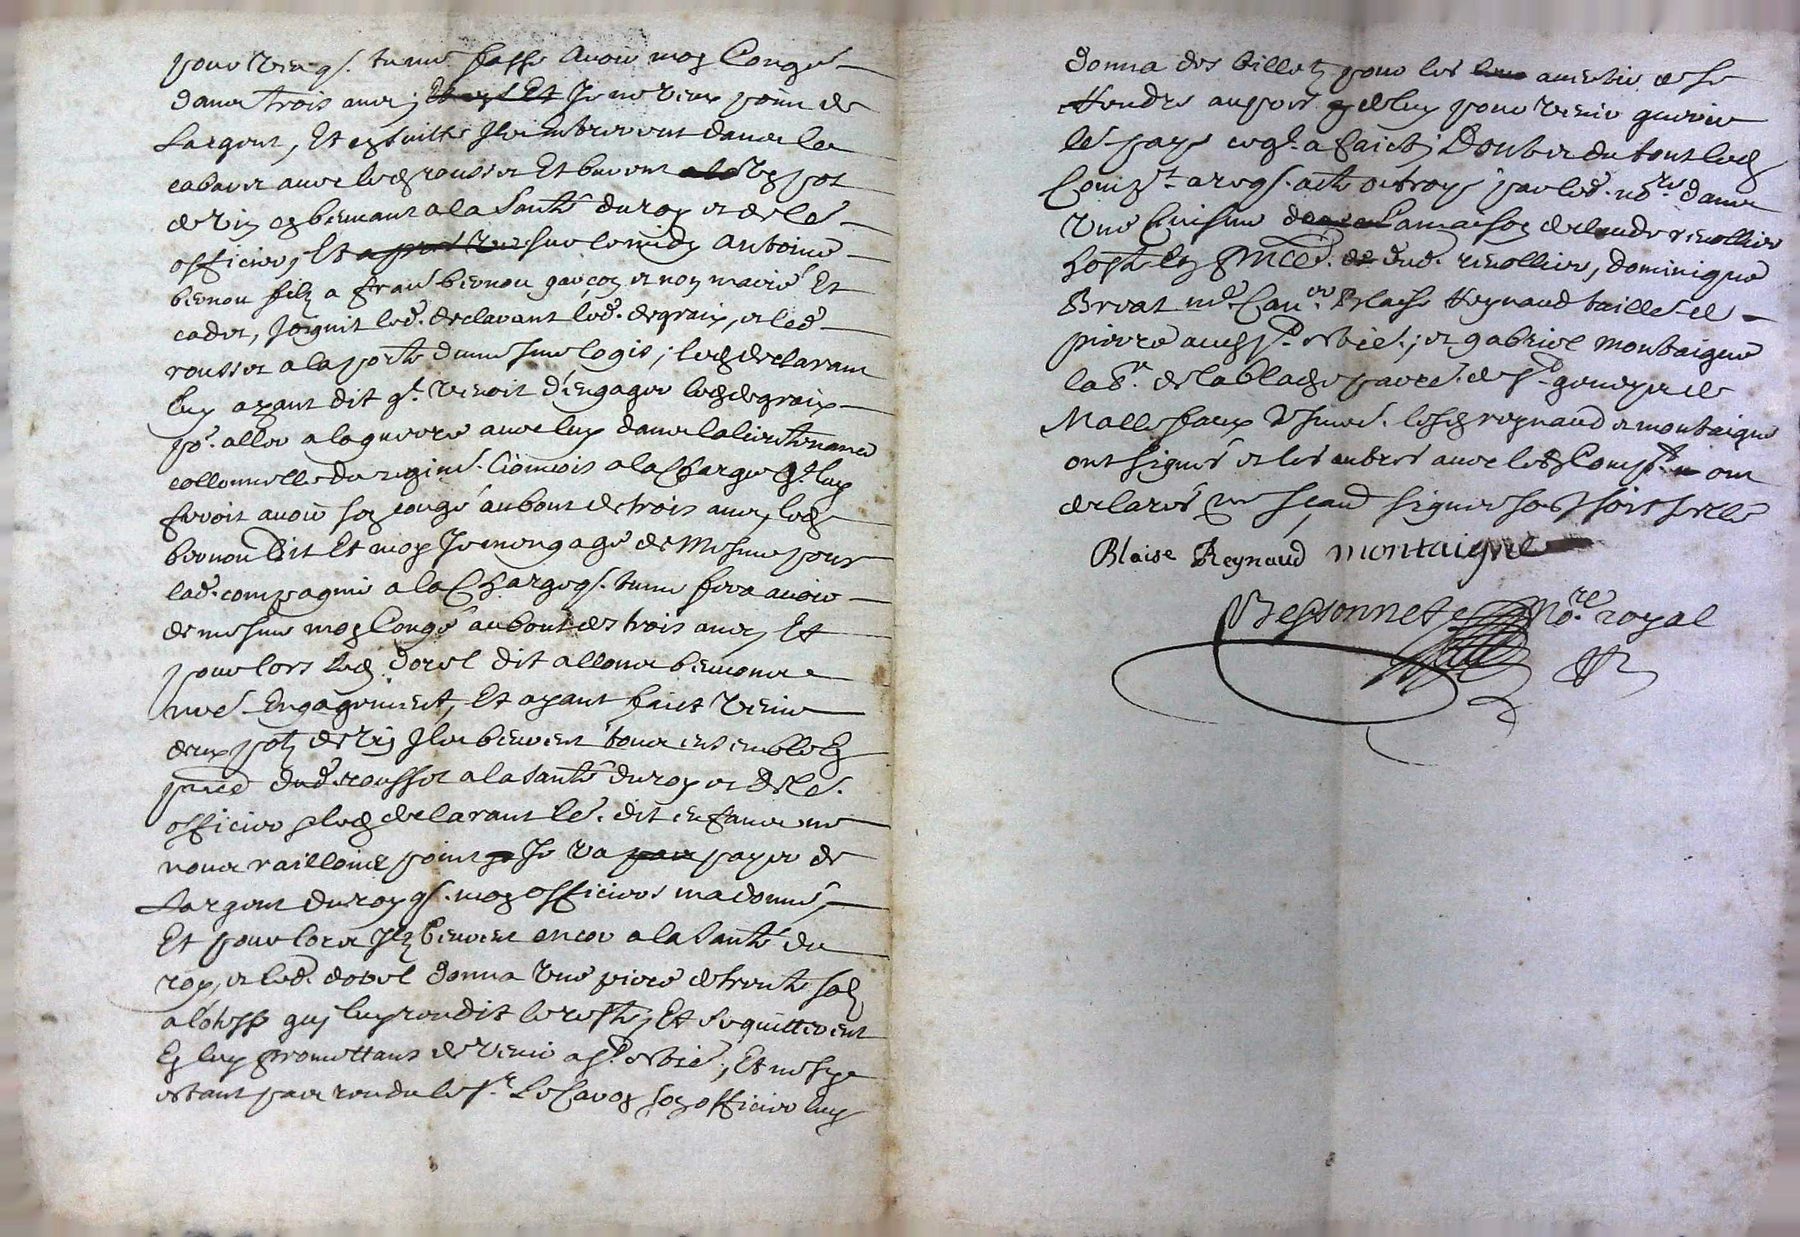 pour veu q. tu me fasse avoir moy Congé
dans trois ans, Et Je ne veux point de
Largent, Et ensuitte Ils entrerent dans le
cabaret avec led rousset Et burent un pot
de vin en beuvant a la Santé du roy et de les
officiers, Et apres sur le midy Antoine
bernou filz a fran bernou garçon et non marié Et
cadet, Joignit led. declarant led. degraix, et led.
rousset a la porte dume sme logis, led declarant
luy ayant dit q. venoit d'Engager led degraix
pr. aller a la guerre avec luy dans la lieutenance
collonnelle du regime. a la Charge q. luy
feroit avoir son congé au bout de trois ans, led
bernou Dit Et moy Je mengage de Mesme pour
lad. compagnie a la Charge q. tu me fera avoir
de mesme mon Congé au bout des trois ans, Et
pour lors led dorel dit allons beuvons a
nre Engagement, Et ayant faict venir
deux potz de vin Ils beurent tous ensemble En
pnce dud. rousset a la santé du roy et de les
officiers, led declarant le. dit enfans ne
nous raillons point Je va payer de
Largent du roy q. mon officiers ma donné,
Et pour lors Ilz beurent encor a la Santé du
roy, et led. dorel donna une piece de trente solz
a lhoste quy luy rendit le reste, Et se quitterent
En luy promettant de venir a St. , Et ne sy
estant pas rendu le sr. Le son officier luy
donna des billetz pour les avertir de se
Rendre aupres de luy pour venir
le pays ce q. a faict, Dont et du tout led
Comp.t a req. acte octroyé par led. nore. dans
une Cuisine de La maison de claude revollier
hoste En pnce. dud. revollier, dominique
Bruat Blaise Reynaud tailleur
pierre , et gabriel montaigne
la Sr. de la blache paroisse. de St genest de
Mallifaux . lesd reynaud et montaigne
ont Signé et les autres avec led Comp.t ont
declaré ne Scavoir Signer
Blaise Reynaud montaigne
Bessonnet Nore. royal